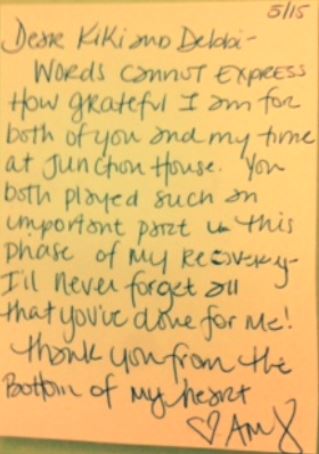 5/15
Dear Kiki and Debbi-
Words cannot express
How grateful I am for
both of you and my time
at Junction House. You
both played such an
important part in this
phase of my recovery-
I'll never forget all
that you've done for me!
Thank you from the
Bottom of my heart
♡ Amy